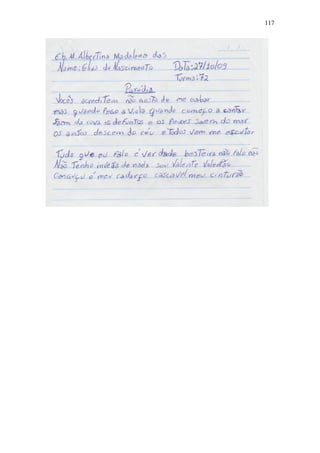 117
Eb. M. Albertina Madalena das
Nome: Elias do Nascimento Data: 27/10/09
Turma: 72
Paródia
Vocês acreditem não gosto de me gabar
mas quando Pego a Viola quando começo a cantar
saem da cova os defuntos e os Peixes saem do mar
os anjos descem do céu e Todos vem me escutar
Tudo que eu falo é verdade besteira não falo não
Não Tenho inveja de nada sou Valente Valentão
é meu cadarço cascavel meu cinturão